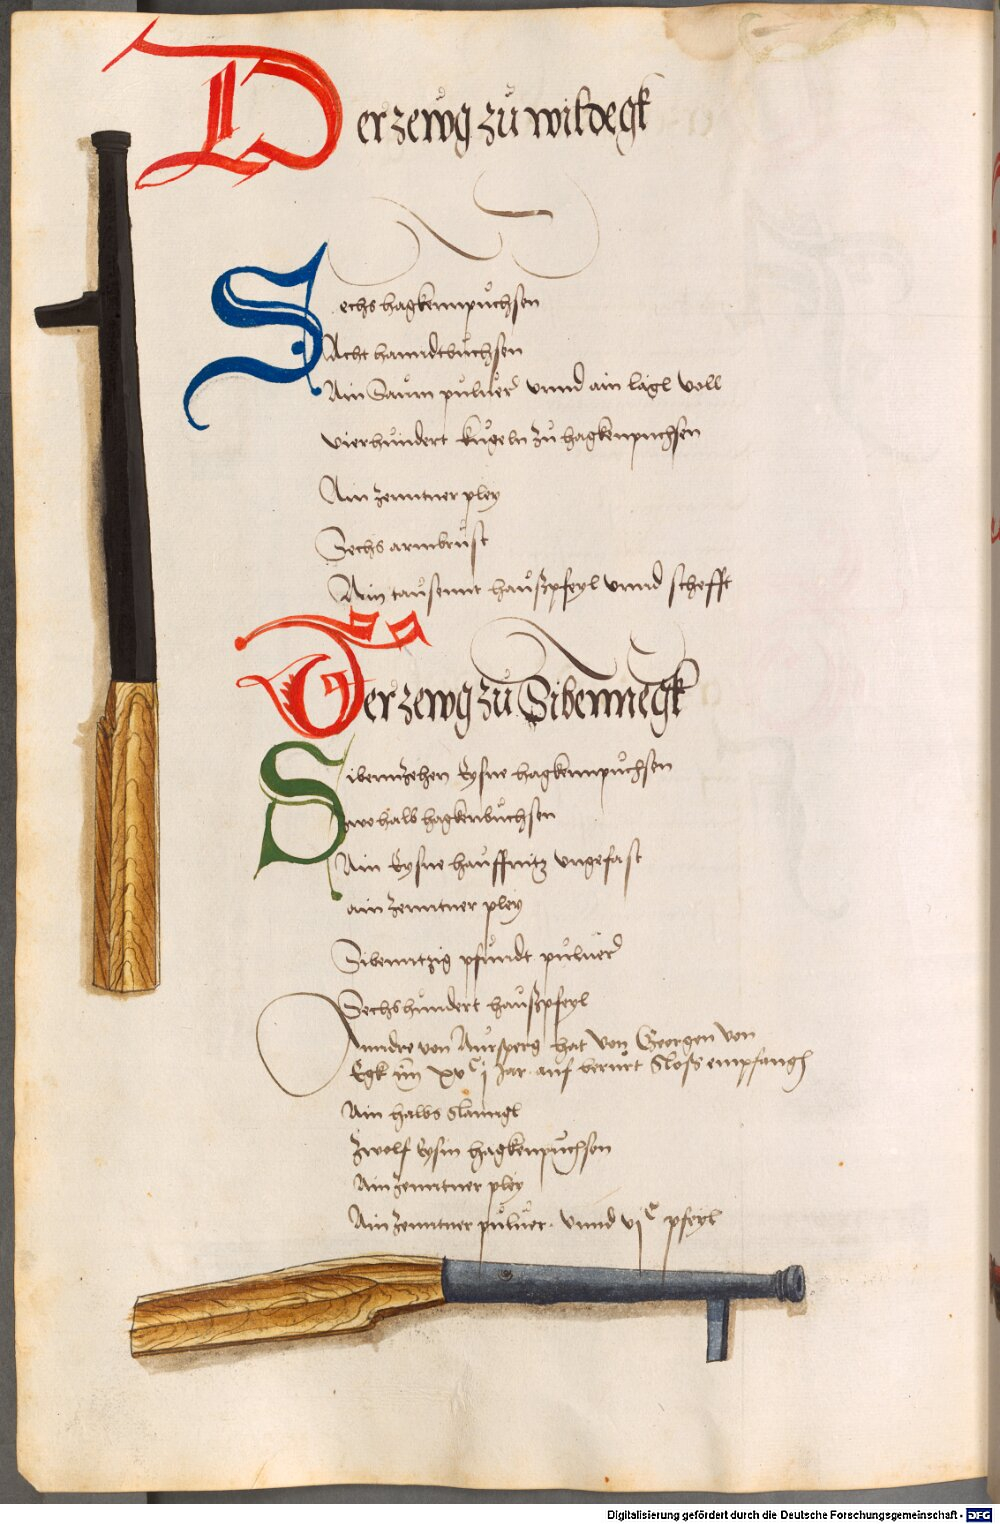 Der zewg zů wildegk
Sechs hagkennpůchsen
Acht hanndtbůchsen
Ain Saum pulůer vnnd ain lagl voll
vierhundert kugeln zů hagkenpuchsen
Ain zenntner pley
Sechs armbrust
Ain tausennt haußpfeyl vnnd schefft
Der zewg zů Sibennegk
Sibennzehen Eysne hagkennpůchsen
Zwo halb hagkenbůchsen
Ain Eysne hauffnitz vngefast
ain zenntner pley
Sibenntzig pfundt pulůer
Sechshundert haußpfeyl
Anndre von Aursperg hat von Georgen von
Egk im xvᶜ j Jar auf berurt Sloss empfangen
Ain halbs slanngl
Zwelf Eysin hagkenpuchsen
Ain zenntner pley
Ain zenntner pulůer. vnnd vjᶜ pfeyl
Digitalisierung gefördert durch die Deutsche Forschungsgemeinschaft - DFG